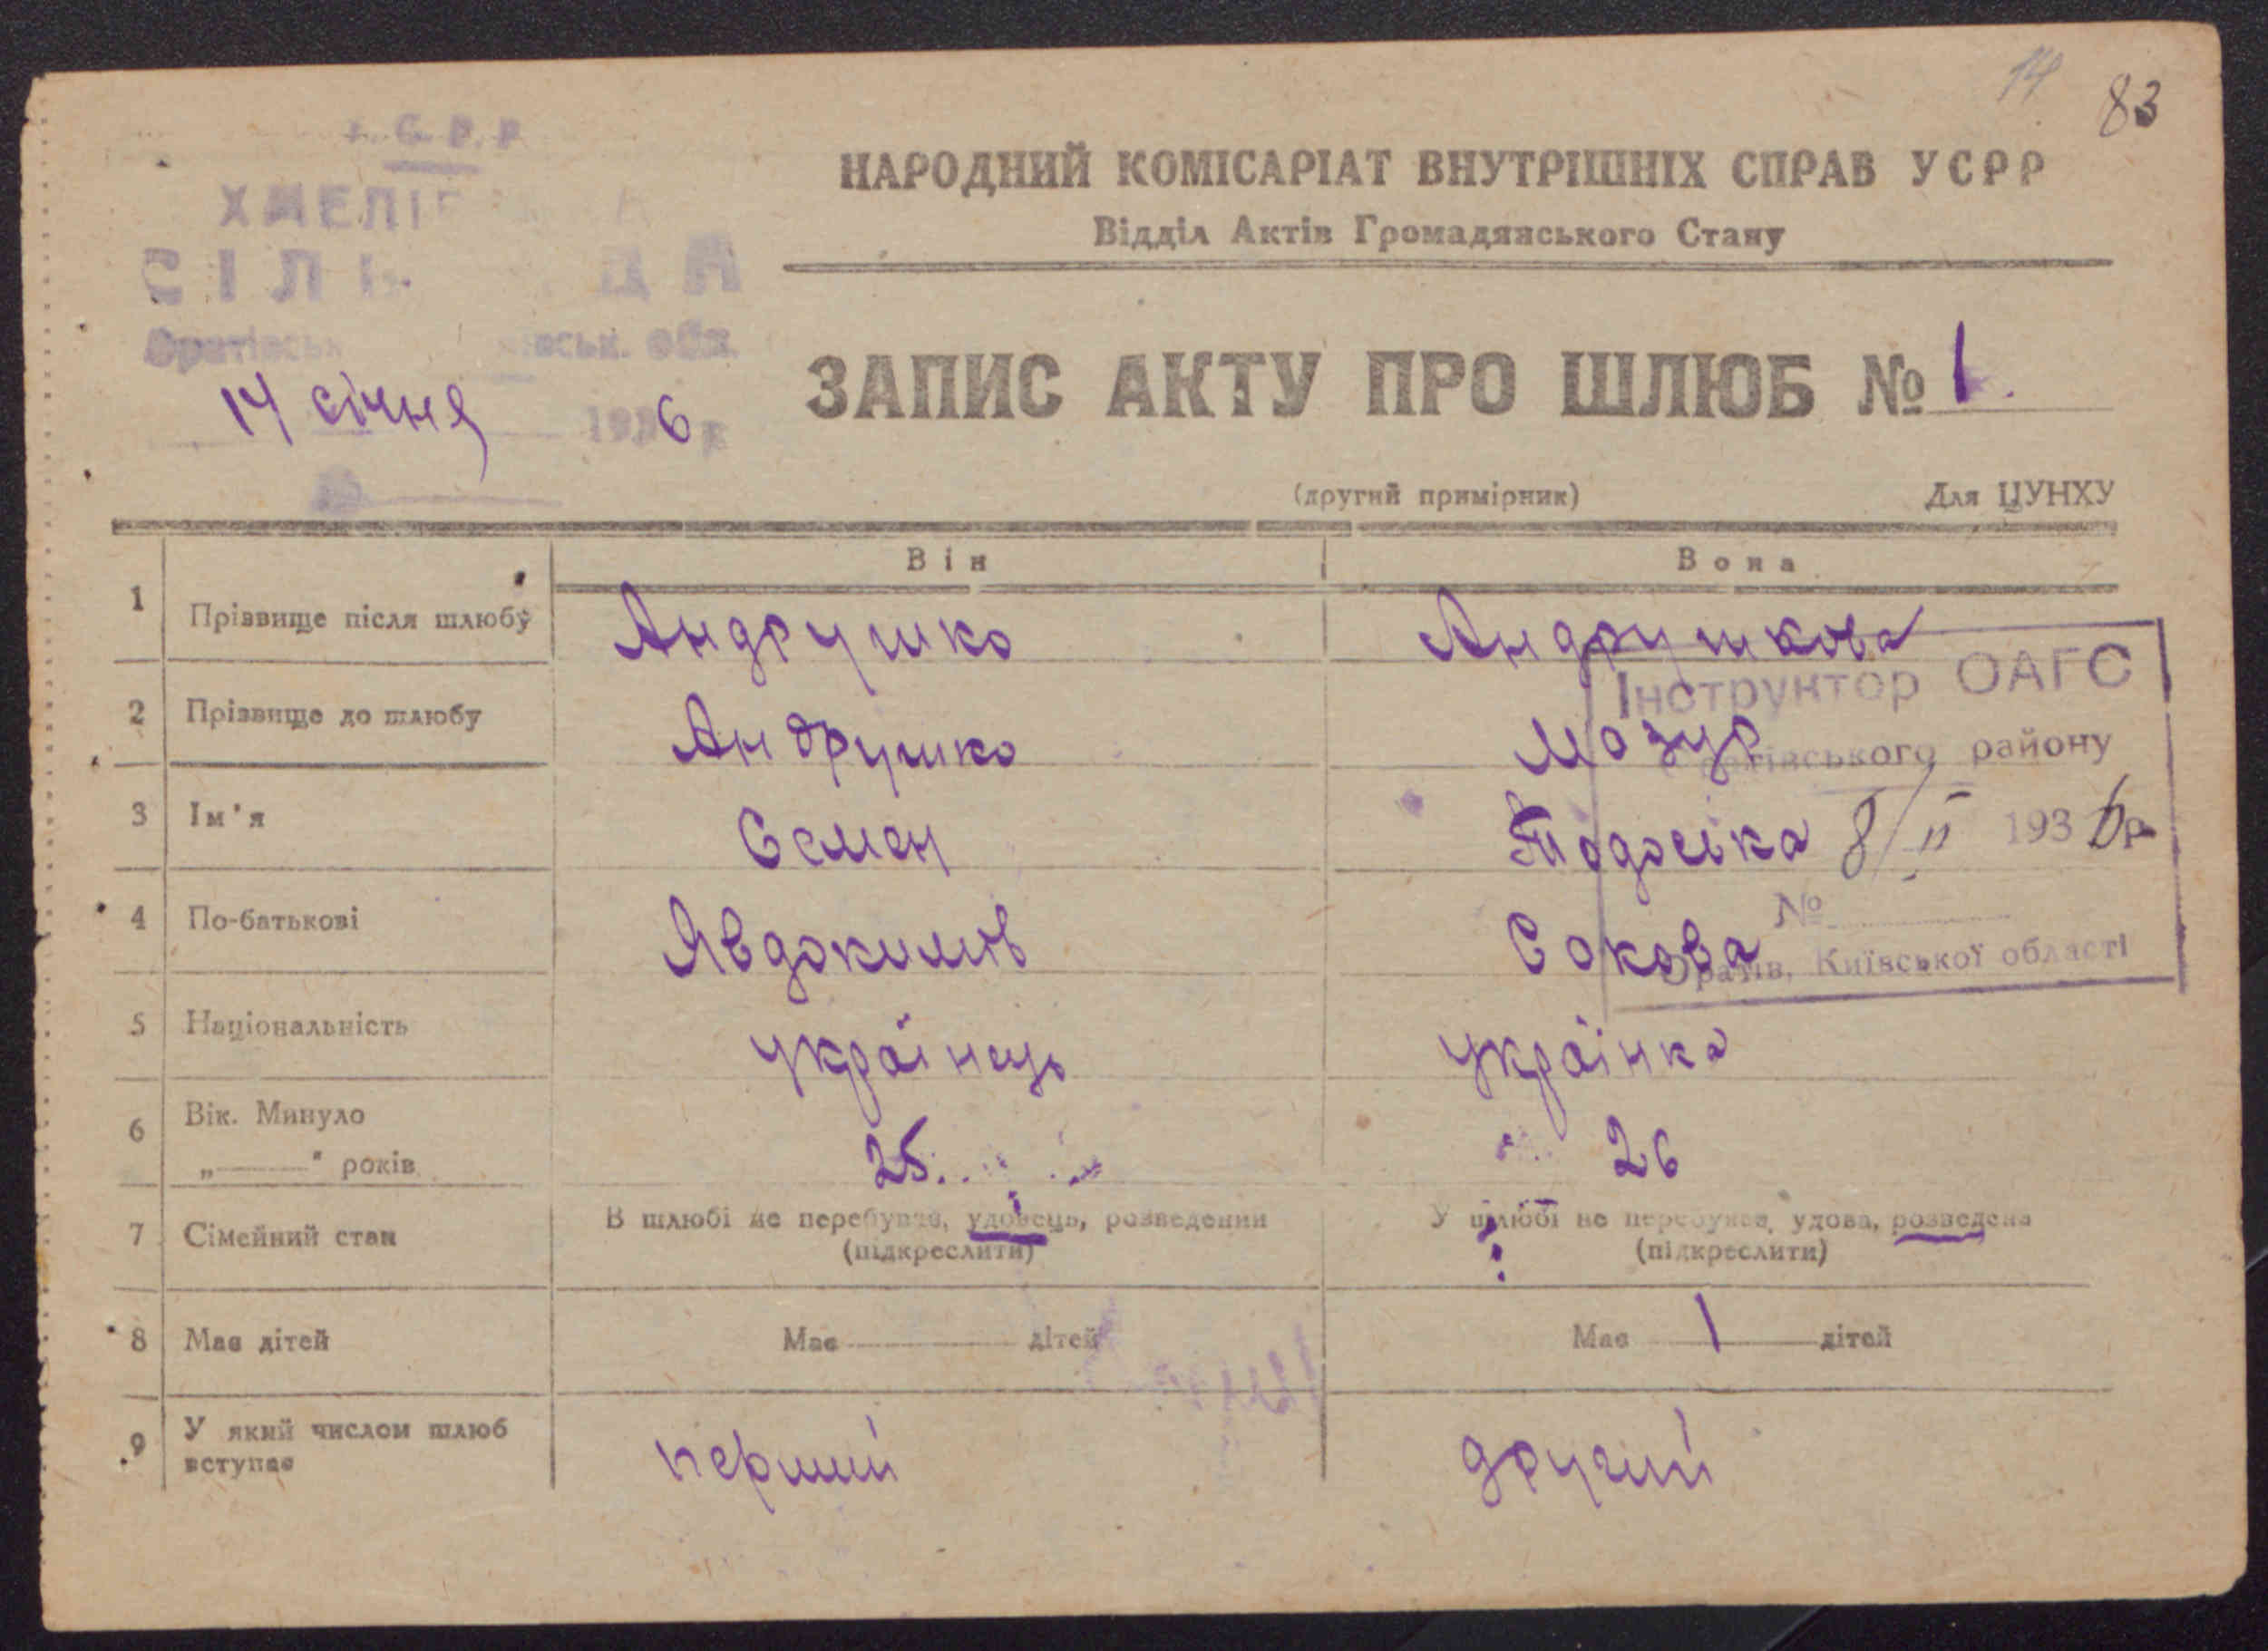 14 83
С. Р. Р.
ХМЕЛІ
СІЛЬ ДА
ськ. обл.
14 січня 1936 р
№
НАРОДНИЙ КОМІСАРІАТ ВНУТРІШНІХ СПРАВ УСРР
Відділ Актів Громадянського Стану
ЗАПИС АКТУ ПРО ШЛЮБ № 1
(другий примірник) Для ЦУНХУ
Він Вона
1 Прізвище після шлюбу Андрушко Андрушкова
Інструктор ОАГС
2 Прізвище до шлюбу Андрушко Мазур
району
3 Ім'я Семен Тодоська
8/II 1936р
4 По-батькові Явдокимів Сакова
№
Оратів, Київської області
5 Національність українець українка
6 Вік. Минуло
„——" років 25 26
7 Сімейний стан В шлюбі не перебував, удовець, розведений У шлюбі не перебувала, удова, розведена
(підкреслити) (підкреслити)
8 Має дітей Має —— дітей Має 1 дітей
9 У який числом шлюб
вступає перший другий